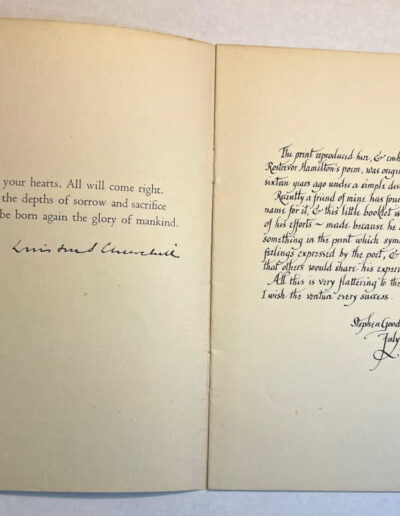 your hearts. All will come right.
the depths of sorrow and sacrifice
be born again the glory of mankind.
Winston S. Churchill
The print reproduced here, & emb
Rostrevor Hamilton's poem, was origin
sixteen years ago under a simple des
Recently a friend of mine has foun
name for it, & this little booklet is
of his efforts ~ made because he
something in the print which sym
feelings expressed by the poet, &
that others would share his exper
All this is very flattering to the
I wish the venture every success.
Stephen Good
July